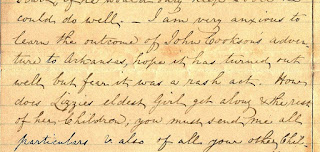 could do well. – I am very anxious to
learn the outcome of John Cookson's adven-
ture to Arkansas, hope it has turned out
well but fear it was a rash act. How
does Lizzies eldest Girl get along & the rest
of her Children, you must send me all
particulars & also of all your other Chil-